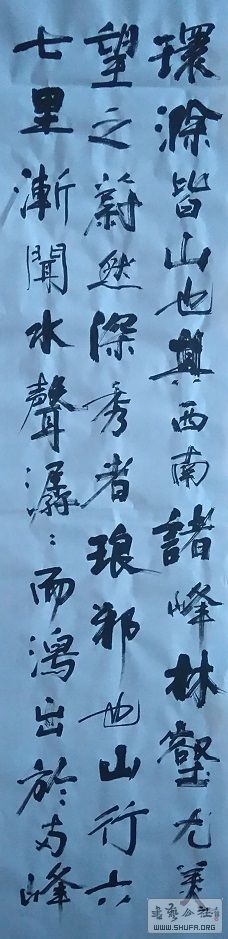 環滁皆山也其西南諸峰林壑尤美
望之蔚然深秀者琅邪也山行六
七里漸聞水聲潺:而瀉出於两峰
書藝公社
WWW.SHUFA.ORG